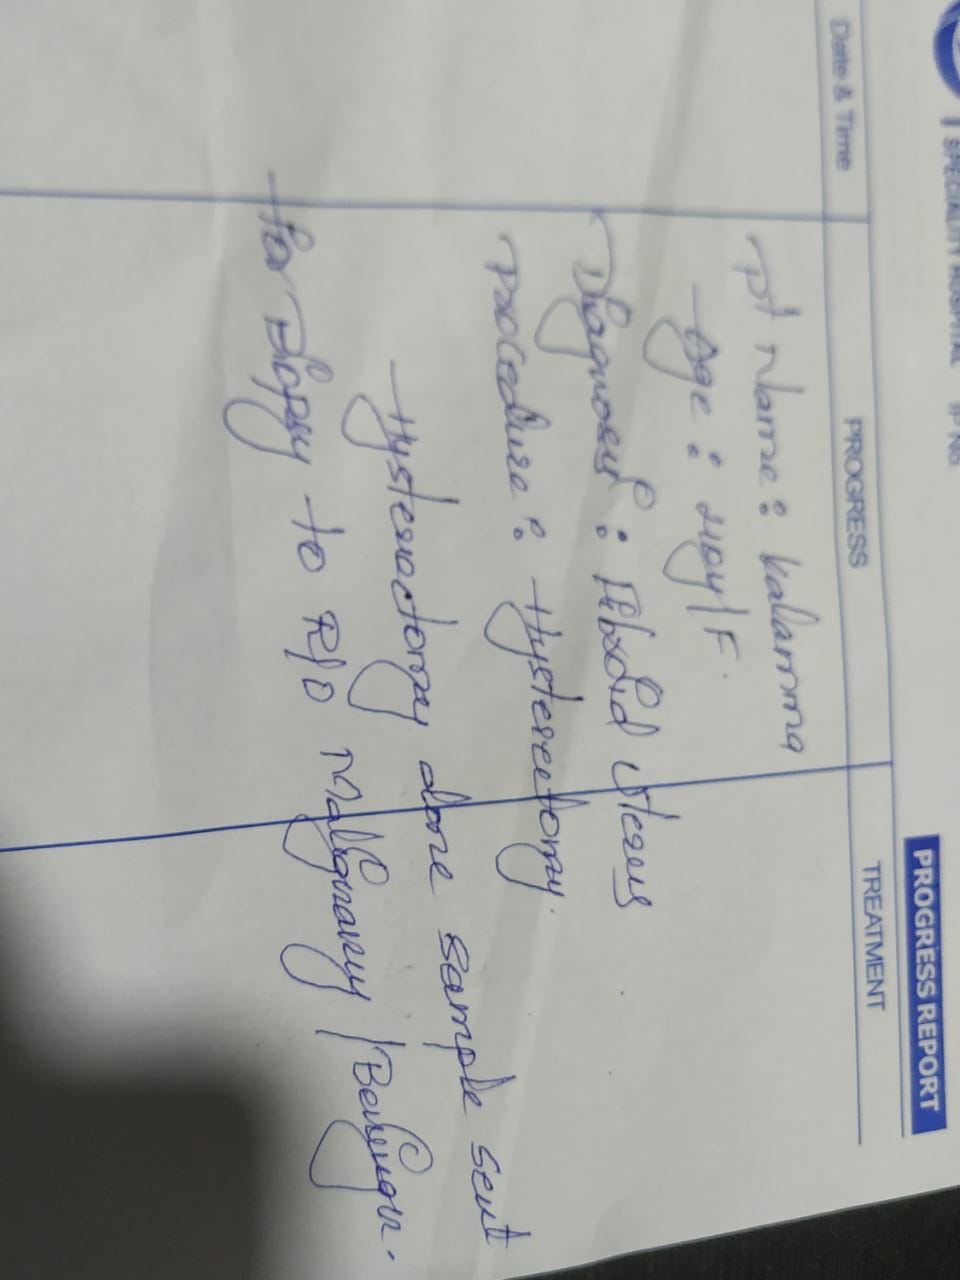 SPECIALITY HOSPITAL IP No.
PROGRESS REPORT
Date & Time PROGRESS TREATMENT
Pt Name : Kalamma
Age : 40y/F.
Diagnosis : Fibroid Uterus
Procedure : Hysterectomy.
Hysterectomy done sample sent
for Biopsy to R/O Malignancy / Benign.